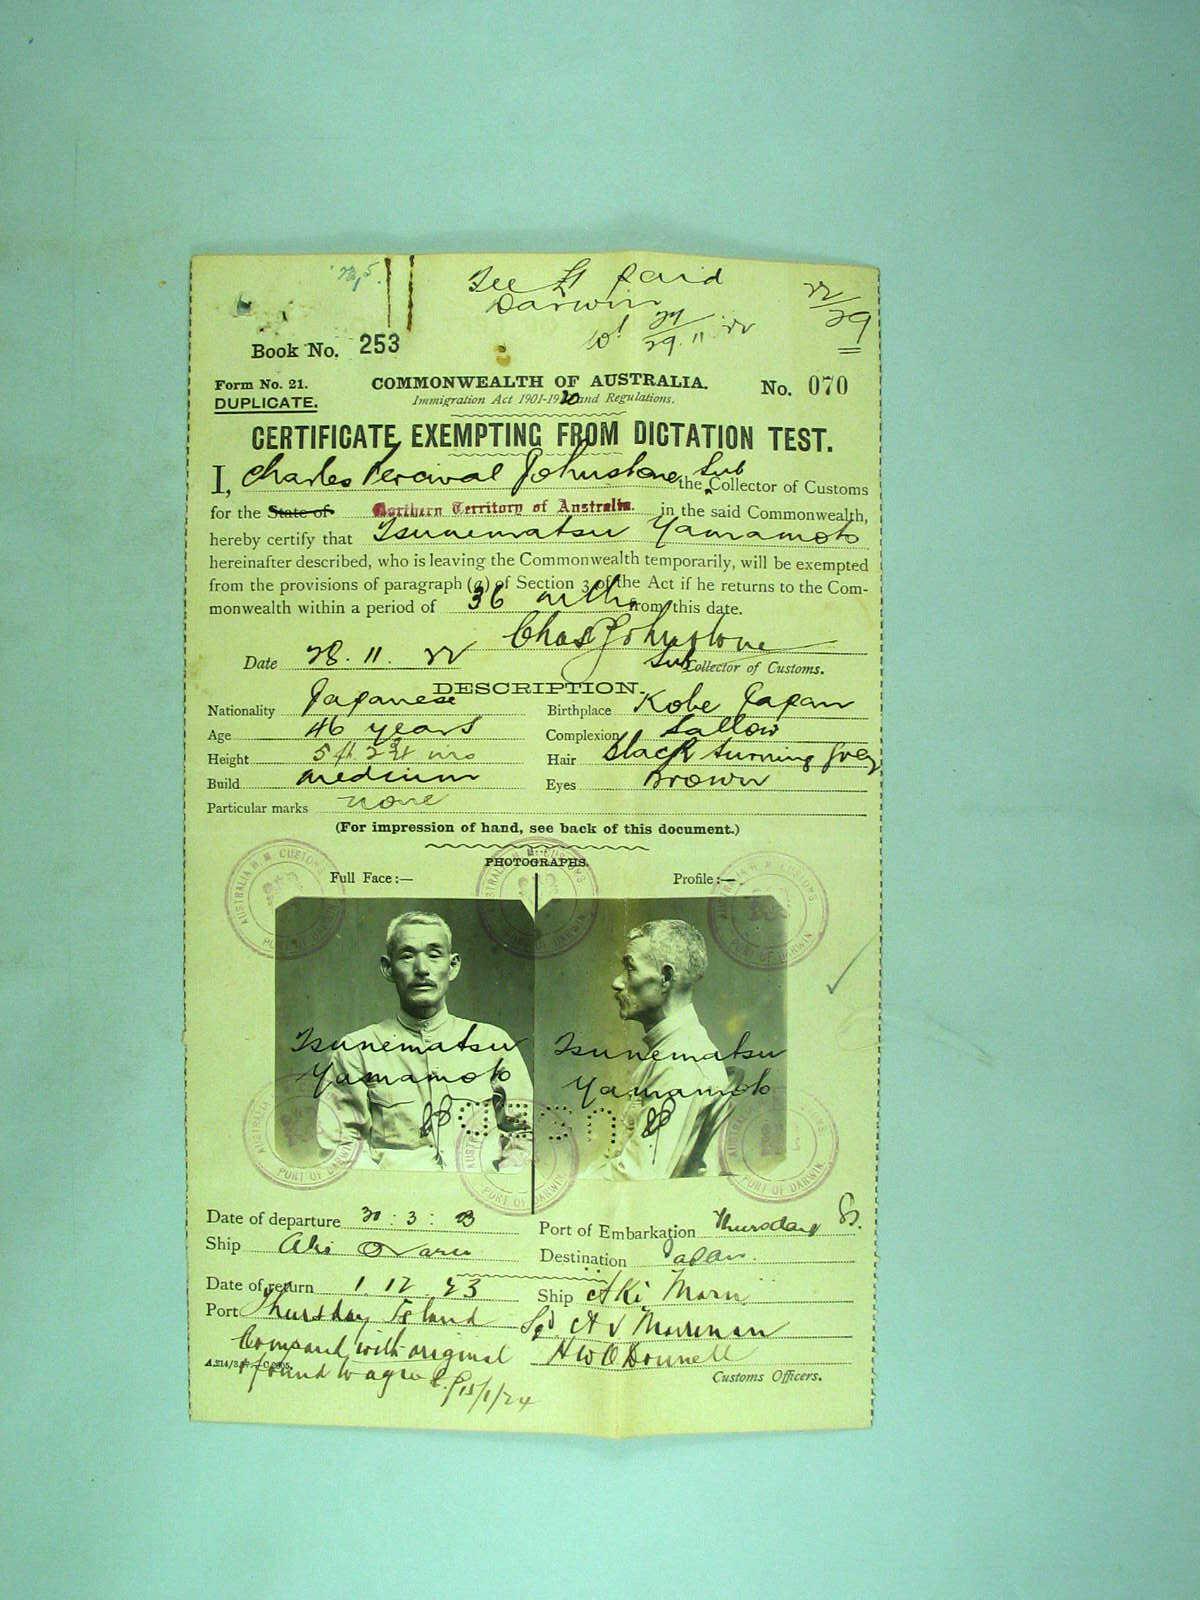 Fee £1 paid
Darwin
22/29
29.11.22
Book No. 253
Form No. 21.
COMMONWEALTH OF AUSTRALIA.
No. 070
DUPLICATE.
Immigration Act 1901-1920 and Regulations.
CERTIFICATE EXEMPTING FROM DICTATION TEST.
I, Charles Percival Johnstone, the Sub Collector of Customs
for the State of Northern Territory of Australia. in the said Commonwealth,
hereby certify that Tsunematsu Yamamoto
hereinafter described, who is leaving the Commonwealth temporarily, will be exempted
from the provisions of paragraph (a) of Section 3 of the Act if he returns to the Com-
monwealth within a period of 36 mths from this date.
Chas P Johnstone
Date 28.11.22
Sub Collector of Customs.
DESCRIPTION.
Nationality Japanese
Birthplace Kobe Japan
Age 46 years
Complexion Sallow
Height 5 ft 2¾ ins
Hair Black turning Grey
Build medium
Eyes Brown
Particular marks none
(For impression of hand, see back of this document.)
PHOTOGRAPHS.
Full Face:—
Profile:—
AUSTRALIA H.M. CUSTOMS
PORT OF DARWIN
Tsunematsu
Yamamoto
Tsunematsu
Yamamoto
Date of departure 30:3:23
Port of Embarkation Thursday Is.
Ship Aki Maru
Destination Japan.
Date of return 1.12.23
Ship Aki Maru
Port Thursday Island
Sgd
Compared with original
H W O'Donnell
& found to agree
15/1/24
Customs Officers.